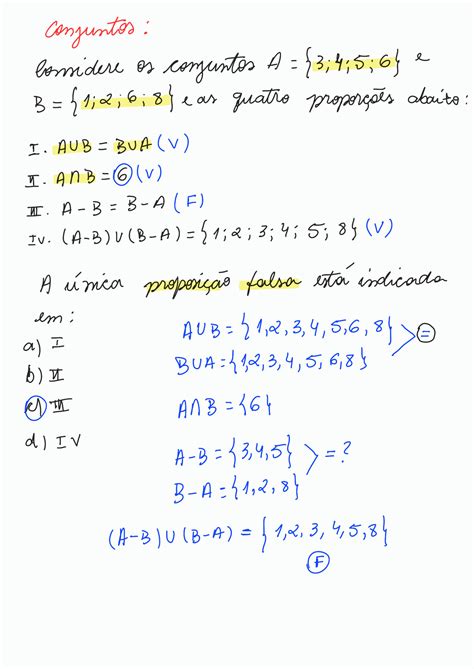 Conjuntos:
Considere os conjuntos A = {3;4;5;6} e
B = {1;2;6;8} e as quatro proporções abaixo:
I. A∪B = B∪A (V)
II. A∩B = 6 (V)
III. A-B = B-A (F)
IV. (A-B)∪(B-A) = {1;2;3;4;5;8} (V)
A única proposição falsa está indicada
em:
a) I
b) II
c) III
d) IV
A∪B = {1,2,3,4,5,6,8}
B∪A = {1,2,3,4,5,6,8} > =
A∩B = {6}
A-B = {3,4,5} > = ?
B-A = {1,2,8}
(A-B)∪(B-A) = {1,2,3,4,5,8}
F